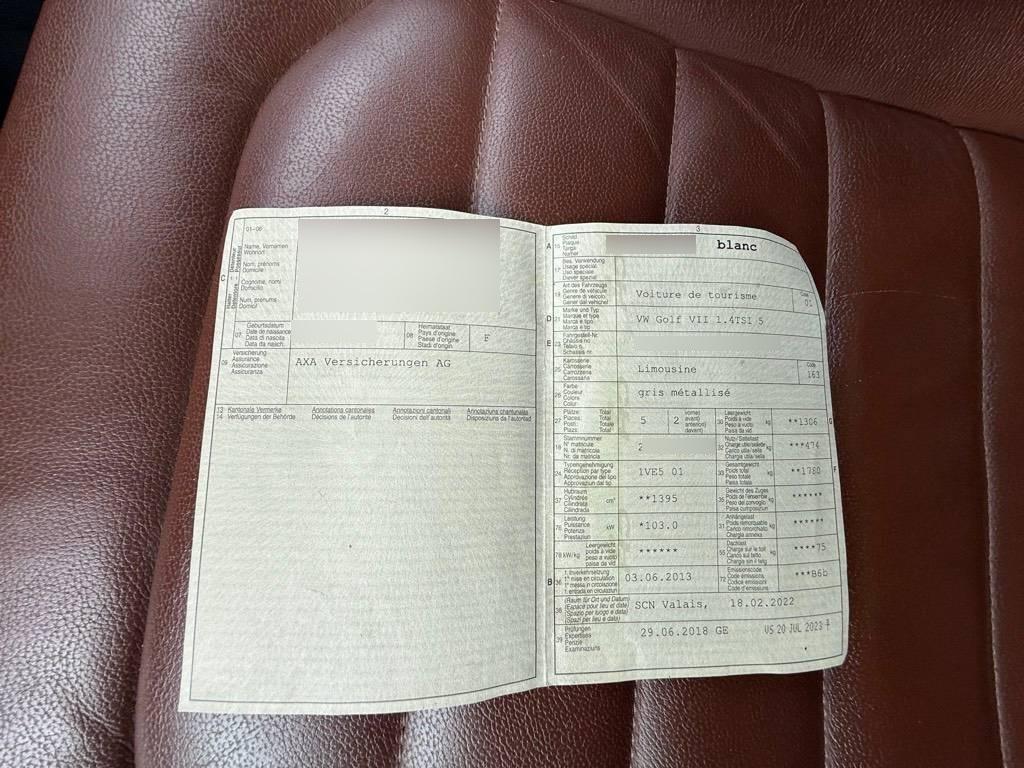 2
01-06
Name, Vornamen
Wohnort
Nom, prénoms
Domicile
Cognome, nomi
Domicilio
Num, prenums
Domicil
C
07
Geburtsdatum
Date de naissance
Data di nascita
Data da nasch.
08
Heimatstaat
Pays d'origine
Paese d'origine
Stadi d'origin
F
09
Versicherung
Assurance
Assicurazione
Assicuranza
AXA Versicherungen AG
13 Kantonale Vermerke Annotations cantonales Annotazioni cantonali Annotaziuns chantunalas
14 Verfügungen der Behörde Décisions de l'autorité Decisioni dell'autorità Disposiziuns da l'autoritad
3
A 15
Schild
Plaque
Targa
Numer
blanc
17
Bes. Verwendung
Usage spécial
Uso speciale
Diever spezial
19
Art des Fahrzeugs
Genre de véhicule
Genere di veicolo
Gener dal vehichel
Voiture de tourisme
Code
01
D 21
Marke und Typ
Marque et type
Marca e tipo
Marca e tip
VW Golf VII 1.4TSI 5
E 23
Fahrgestell-Nr.
Châssis no
Telaio n.
Schassis nr.
25
Karosserie
Carrosserie
Carrozzeria
Carossaria
Limousine
Code
163
26
Farbe
Couleur
Colore
Color
gris métallisé
27
Plätze: Total
Places: Total
Posti: Totale
Plazs: Total
5
2
vorne)
avant)
anteriori)
davant)
30
Leergewicht
Poids à vide
Peso a vuoto
Paisa da vid
kg
**1306
G
18
Stammnummer
N° matricule
N. di matricola
Nr. da matricla
2
32
Nutz-/Sattellast
Charge utile/sellette
Carico utile/sella
Chargia utila/sella
kg
***474
24
Typengenehmigung
Réception par type
Approvazione del tipo
Approvaziun dal tip
1VE5 01
33
Gesamtgewicht
Poids total
Peso totale
Paisa totala
kg
**1780
F
37
Hubraum
Cylindrée
Cilindrata
Cilindrada
cm³
**1395
35
Gewicht des Zuges
Poids de l'ensemble
Peso del convoglio
Paisa cumposiziun
kg
******
76
Leistung
Puissance
Potenza
Prestaziun
kW
*103.0
31
Anhängelast
Poids remorquable
Carico rimorchiato
Chargia annexa
kg
******
78 kW/kg
Leergewicht
poids à vide
peso a vuoto
paisa da vid
******
55
Dachlast
Charge sur le toit
Carico sul tetto
Chargia sin il tetg
kg
****75
B 36
1. Inverkehrsetzung
1re mise en circulation
1a messa in circolazione
1. entrada en circulaziun
03.06.2013
72
Emissionscode
Code émissions
Codice emissioni
Code d'emissiuns
***B6b
38
(Raum für Ort und Datum)
(Espace pour lieu et date)
(Spazio per luogo e data)
(Spazi per lieu e data)
SCN Valais, 18.02.2022
39
Prüfungen
Expertises
Perizie
Examinaziuns
29.06.2018 GE VS 20 JUL 2023